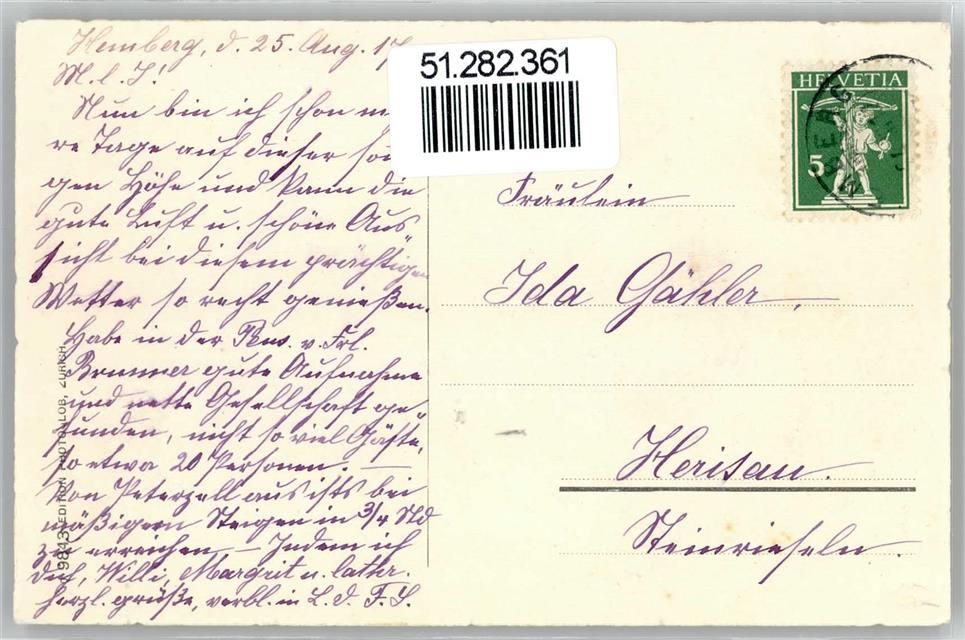 Hemberg, d. 25. Aug. 17
M. l. I!
Nun bin ich schon m
re Tage auf dieser son
gen Höhe und kann die
gute Luft u. schöne Aus
sicht bei diesem prächtigen
Wetter so recht genießen.
Habe in der Pens. v. Frl.
Brunner gute Aufnahme
und nette Gesellschaft ge-
funden, nicht so viel Gäste,
so etwa 20 Personen. —
Von Peterzell aus ists bei
mäßigem Steigen in 3/4 Std
zu erreichen. — Indem ich
dich, Willi, Margrit u.
herzl. grüße, verbl. in L. d. F. G.
51.282.361
HELVETIA
5
Fräulein
Ida Gähler.
Herisau.
Steinrieseln.
9843 EDITION PHOTOGLOB, ZÜRICH